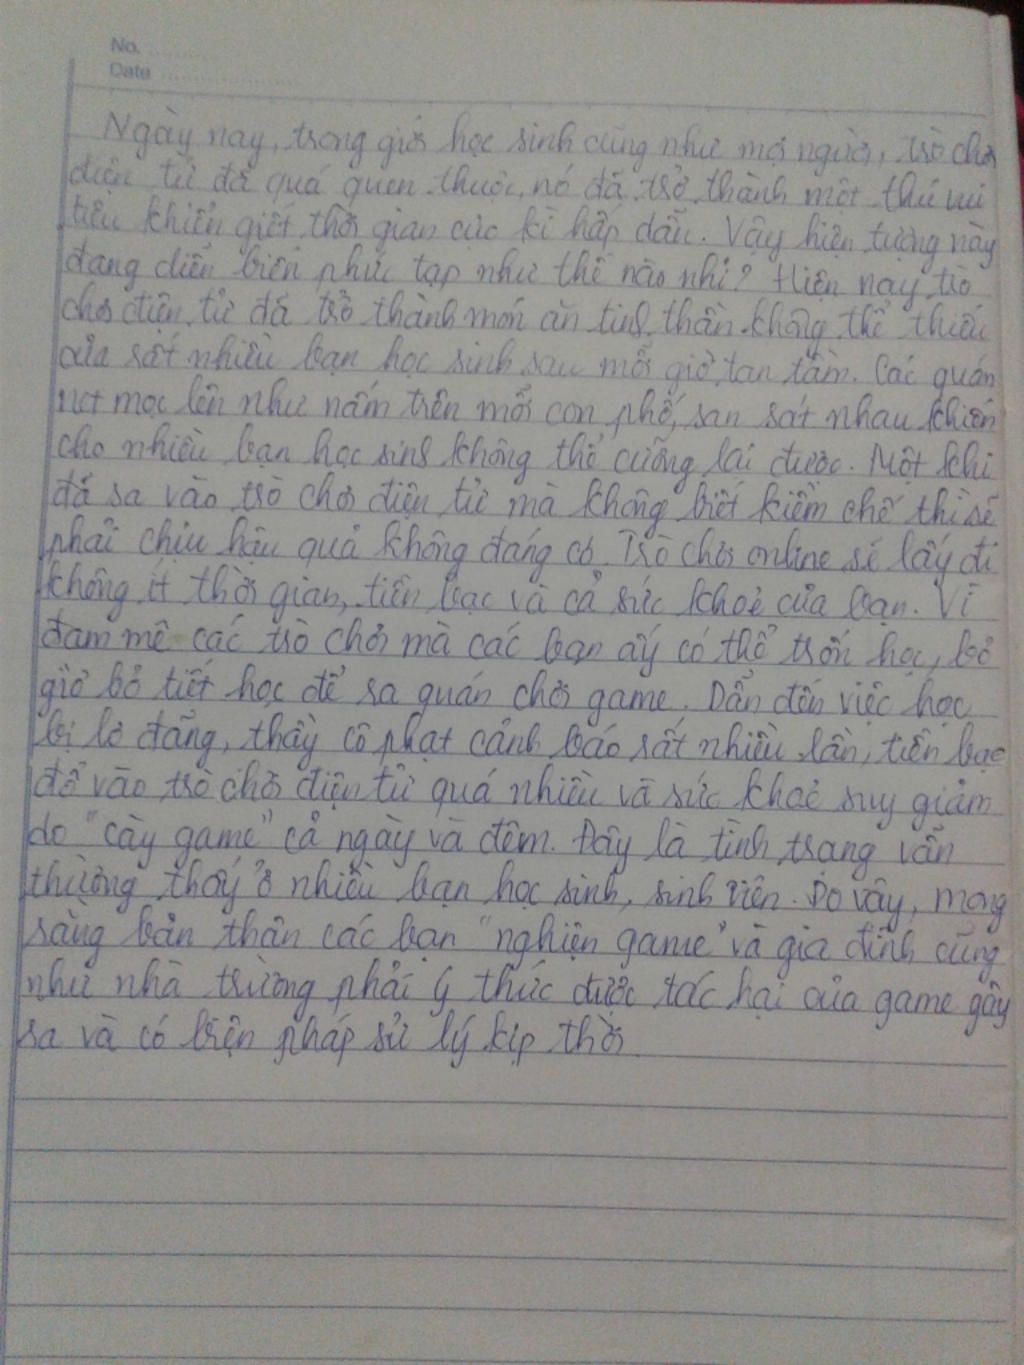 No. ............
Date ........................
Ngày nay, trong giới học sinh cũng như mọi người, trò chơi
điện tử đã quá quen thuộc, nó đã trở thành một thú vui
tiêu khiển giết thời gian cực kì hấp dẫn. Vậy hiện tượng này
đang diễn biến phức tạp như thế nào nhỉ? Hiện nay, trò
chơi điện tử đã trở thành món ăn tinh thần không thể thiếu
của rất nhiều bạn học sinh sau mỗi giờ tan tầm. Các quán
net mọc lên như nấm trên mỗi con phố, san sát nhau khiến
cho nhiều bạn học sinh không thể cưỡng lại được. Một khi
đã sa vào trò chơi điện tử mà không biết kiềm chế thì sẽ
phải chịu hậu quả không đáng có. Trò chơi online sẽ lấy đi
không ít thời gian, tiền bạc và cả sức khoẻ của bạn. Vì
đam mê các trò chơi mà các bạn ấy có thể trốn học, bỏ
giờ bỏ tiết học để ra quán chơi game. Dẫn đến việc học
bị lơ đãng, thầy cô phạt cảnh báo rất nhiều lần, tiền bạc
đổ vào trò chơi điện tử quá nhiều và sức khoẻ suy giảm
do "cày game" cả ngày và đêm. Đây là tình trạng vẫn
thường thấy ở nhiều bạn học sinh, sinh viên. Do vậy, mong
rằng bản thân các bạn "nghiện game" và gia đình cũng
như nhà trường phải ý thức được tác hại của game gây
ra và có biện pháp sử lý kịp thời.